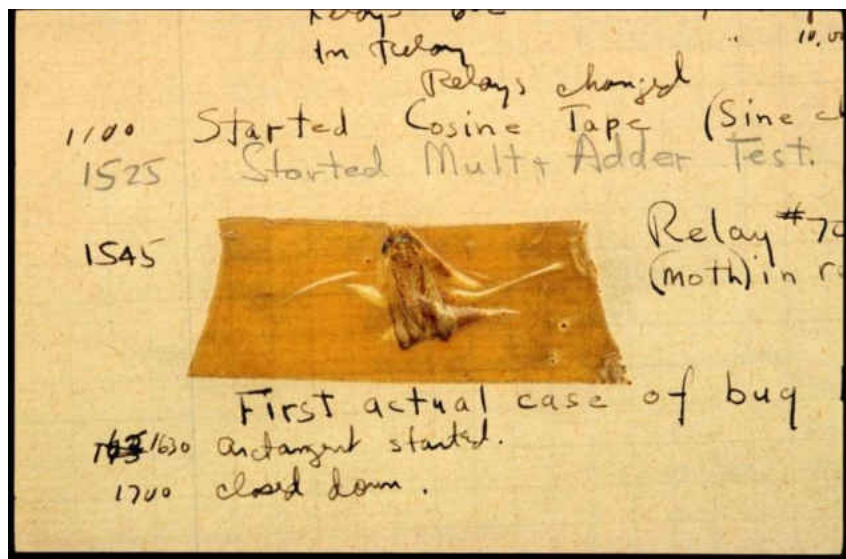 Relays
10,00
In Relay
Relays changed
1100 Started Cosine Tape (Sine c
1525 Started Mult+ Adder Test.
1545 Relay #70
(moth) in r
First actual case of bug
1630 arctangent started.
1700 closed down.